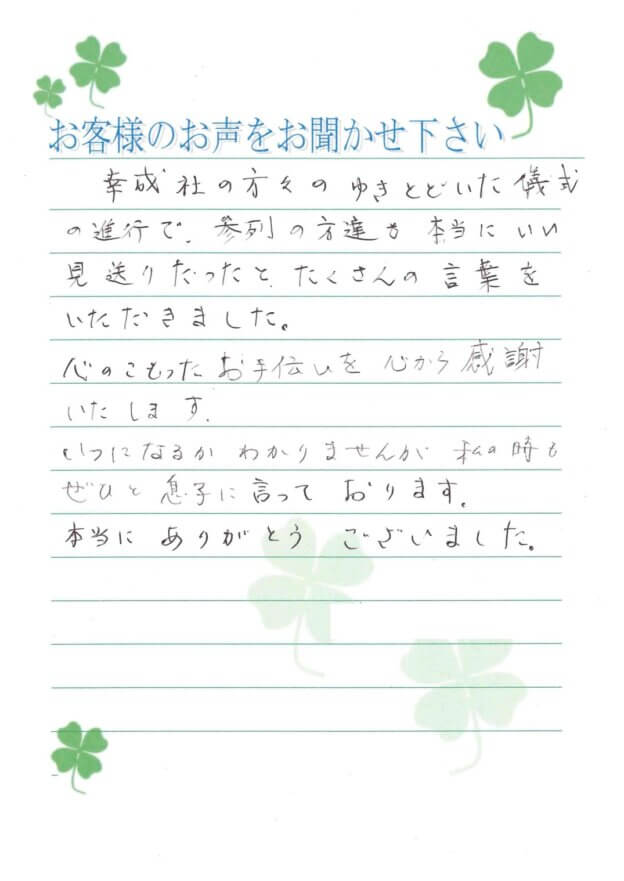 お客様のお声をお聞かせ下さい
幸成社の方々のゆきとどいた儀式
の進行で、参列の方達も本当にいい
見送りだったと、たくさんの言葉を
いただきました。
心のこもったお手伝いを心から感謝
いたします。
いつになるかわかりませんが私の時も
ぜひと息子に言っております。
本当にありがとうございました。